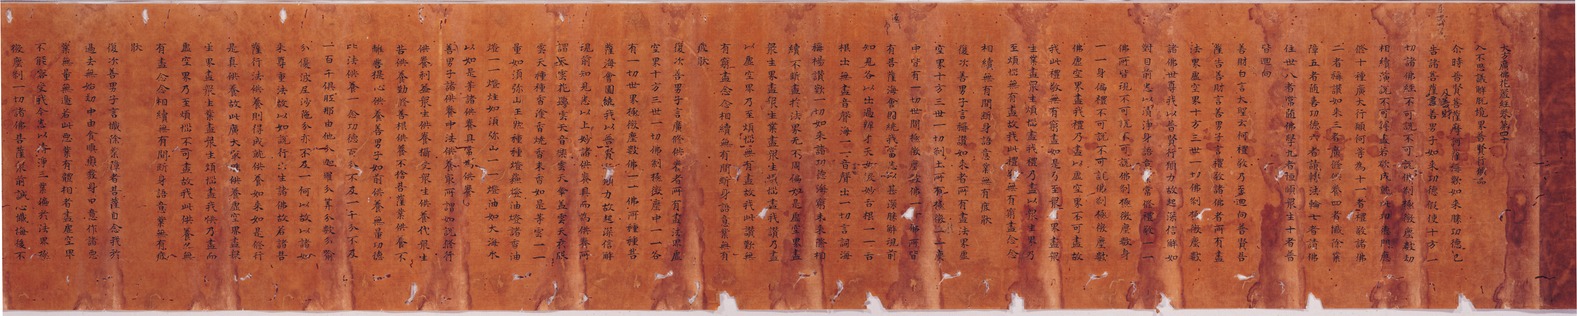 大方廣佛花嚴經卷第四十
入不思議解脫境界普賢行願品
尒時普賢菩薩摩訶薩稱歎如來勝功德已
告諸菩薩及善財言善男子如來功德假使十方一
切諸佛經不可說不可說佛刹極微塵數劫
相續演說不可窮盡若欲成就此功德門應
修十種廣大行願何等爲十一者禮敬諸佛
二者稱讚如來三者廣修供養四者懺除業
障五者隨喜功德六者請轉法輪七者請佛
住世八者常隨佛學九者恒順衆生十者普
皆迴向
善財白言大聖云何禮敬乃至迴向普賢菩
薩告善財言善男子言禮敬諸佛者所有盡
法界虛空界十方三世一切佛刹極微塵數
諸佛世尊我以普賢行願力故起深信解如
對目前悉以清淨身語意業常修禮敬一一
佛所皆現不可說不可說佛刹極微塵數身
一一身遍禮不可說不可說佛刹極微塵數
佛虛空界盡我禮乃盡以虛空界不可盡故
我此禮敬無有窮盡如是乃至衆生界盡衆
生業盡衆生煩惱盡我禮乃盡而衆生界乃
至煩惱無有盡故我此禮敬無有窮盡念念
相續無有間斷身語意業無有疲猒
復次善男子言稱讚如來者所有盡法界虛
空界十方三世一切刹土所有極微一一塵
中皆有一切世間極微塵數佛一一佛所皆
有菩薩海會圍繞我當悉以甚深勝解現前
知見各以出過辯才天女微妙舌根一一舌
根出無盡音聲海一一音聲出一切言詞海
稱揚讚歎一切如來諸功德海窮未來際相
續不斷盡於法界無不周遍如是虛空界盡
衆生界盡衆生業盡衆生煩惱盡我讚乃盡
而虛空界乃至煩惱無有盡故我此讚歎無
有窮盡念念相續無有間斷身語意業無有
疲猒
復次善男子言廣修供養者所有盡法界虛
空界十方三世一切佛刹極微塵中一一各
有一切世界極微塵數佛一一佛所種種菩
薩海會圍繞我以普賢行願力故起深信解
現前知見悉以上妙諸供養具而爲供養所
謂華雲鬘雲天音樂雲天傘蓋雲天衣服
雲天種種香塗香燒香末香如是等雲一一
量如須弥山王然種種燈酥燈油燈諸香油
燈一一燈炷如須弥山一一燈油如大海水
以如是等諸供養具常爲供養
善男子諸供養中法供養最所謂如說修行
供養利益衆生供養攝受衆生供養代衆生
苦供養勤修善根供養不捨菩薩業供養不
離菩提心供養善男子如前供養無量功德
比法供養一念功德百分不及一千分不及
一百千俱胝那由他分迦羅分筭分數分喻
分優波尼沙陀分亦不及一何以故以諸如
來尊重法故以如說行出生諸佛故若諸菩
薩行法供養則得成就供養如來如是修行
是真供養故此廣大最勝供養虛空界盡衆
生界盡衆生業盡衆生煩惱盡我供乃盡而
虛空界乃至煩惱不可盡故我此供養亦無
有盡念念相續無有間斷身語意業無有疲
猒
復次善男子言懺除業障者菩薩自念我於
過去無始劫中由貪瞋癡發身口意作諸惡
業無量無邊若此惡業有體相者盡虛空界
不能容受我今悉以清淨三業遍於法界極
微塵刹一切諸佛菩薩衆前誠心懺悔後不